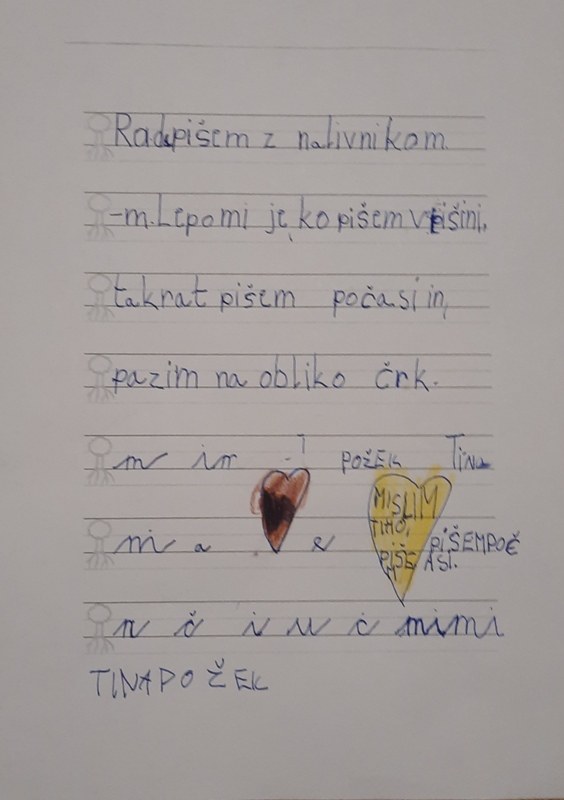 Radapišem z nalivnikom
-m.Lepomi je, ko pišem v tišini,
takrat pišem počasi in,
pazim na obliko črk.
m in
požek Tina
m a e
MISLIM
TIHO,
PIŠEM
PIŠEMPOČ
ASI.
n č i u č mimi
TINAPOŽEK